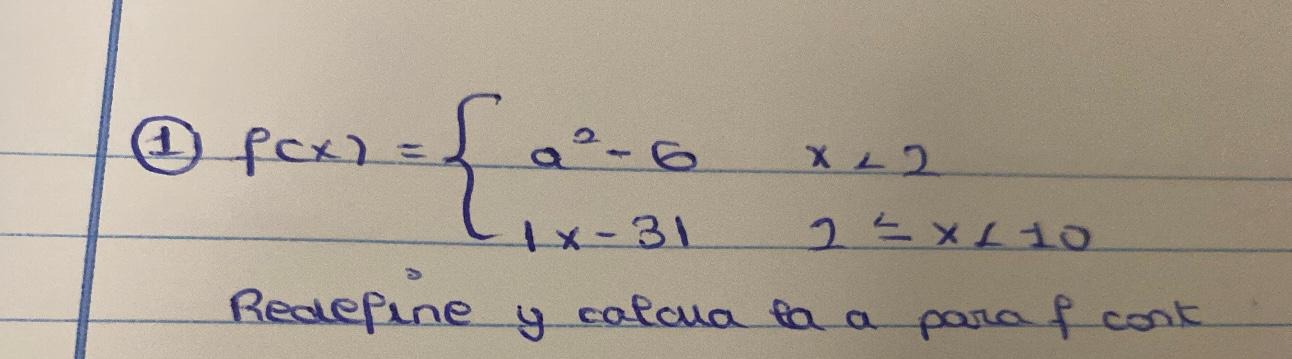 ① f(x) = { a² - 6 x < 2
|x - 3| 2 ≤ x < 10
Redefine y calcua la a para f cont